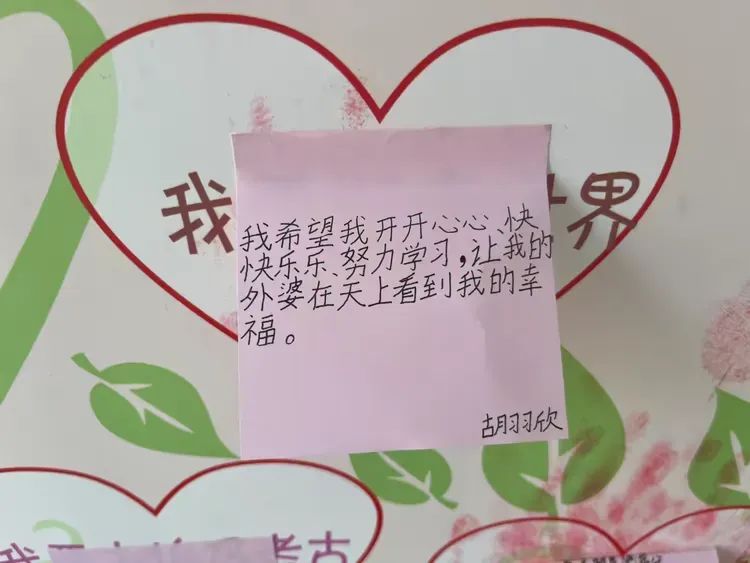 我
界
我希望我开开心心、快
快乐乐、努力学习,让我的
外婆在天上看到我的幸
福。
胡羽欣